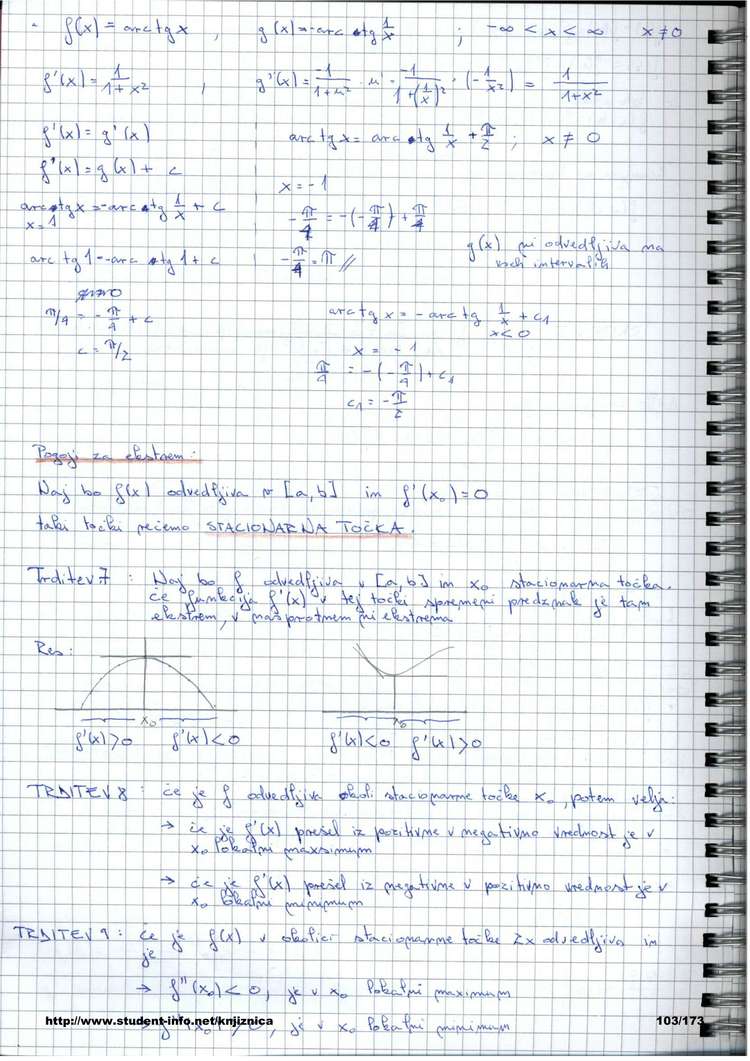 f(x) = arctg x , g(x) = -arc tg 1/x ; -∞ < x < ∞ x ≠ 0
f'(x) = 1/(1+x²) , g'(x) = -1/(1+u²) · u' = -1/(1+(1/x)²) · (-1/x²) = 1/(1+x²)
f'(x) = g'(x) arc tg x = arc tg 1/x + π/2 ; x ≠ 0
f'(x) = g(x) + c
x = -1
arc tg x = -arc tg 1/x + c
x = 1
-π/4 = -(-π/4) + π/4
g(x) ni odvedljiva na
vseh intervalih
arc tg 1 = -arc tg 1 + c
-π/4 = π //
π/4 = -π/4 + c
c = π/2
arc tg x = -arc tg 1/x + c₁
x < 0
x = -1
π/4 = -(-π/4) + c₁
c₁ = -π/2
Pogoji za ekstrem:
Naj bo f(x) odvedljiva v [a,b] in f'(x₀) = 0
taki točki rečemo STACIONARNA TOČKA.
Trditev 7 : Naj bo f odvedljiva v [a,b] in x₀ stacionarna točka.
če funkcija f'(x) v tej točki spremeni predznak je tam
ekstrem, v nasprotnem ni ekstrema
Res:
x₀ x₀
f'(x)>0 f'(x)<0 f'(x)<0 f'(x)>0
TRDITEV 8 : če je f odvedljiva okoli stacionarne točke x₀, potem velja:
→ če je f'(x) prešel iz pozitivne v negativno vrednost je v
x₀ lokalni maxsimum
→ če je f'(x) prešel iz negativne v pozitivno vrednost je v
x₀ lokalni minimum
TRDITEV 9 : če je f(x) v okolici stacionarne točke 2x odvedljiva in
je
→ f''(x₀) < 0, je v x₀ lokalni maximum
http://www.student-info.net/knjiznica 103/173
(x₀) > 0, je v x₀ lokalni minimum